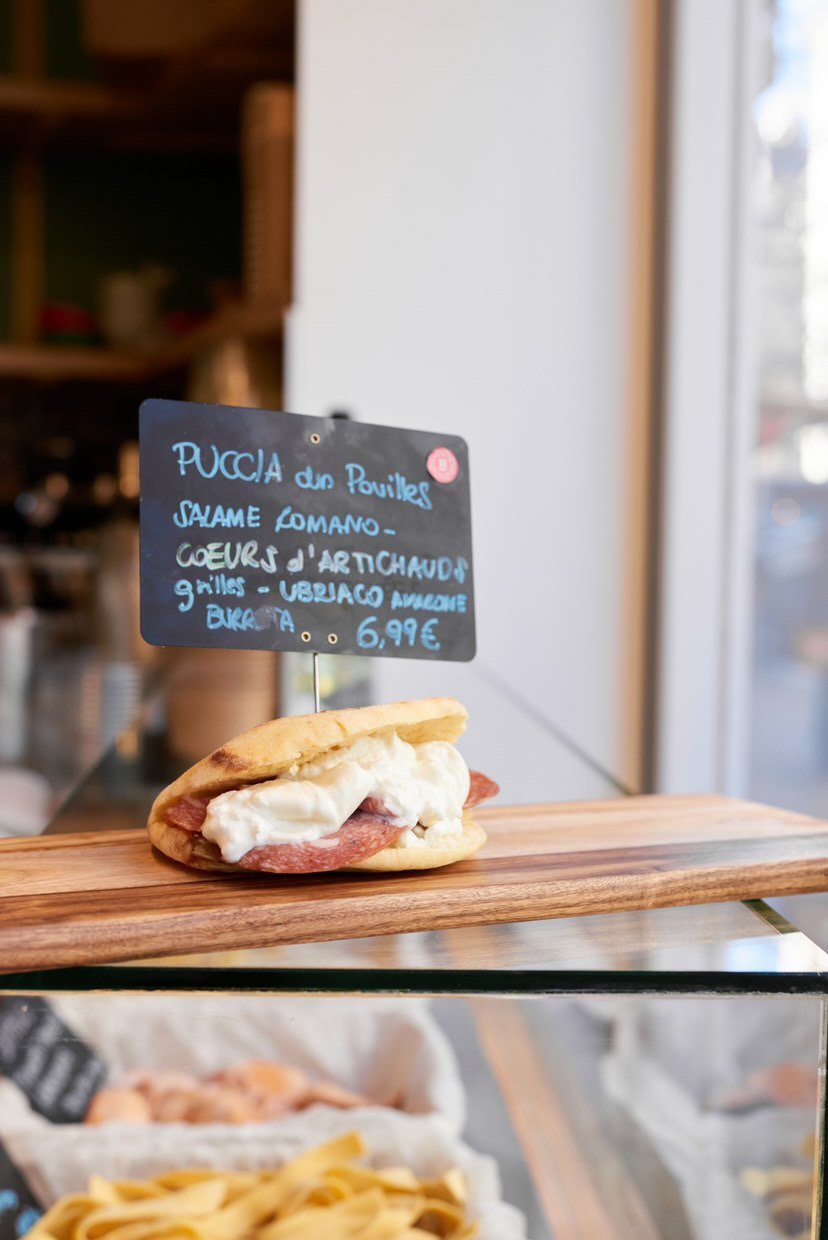 PUCCIA des Pouilles
SALAME ROMANO -
COEURS d'ARTICHAUDS
grillés - UBRIACO AMARONE
BURRATA 6,99€
B